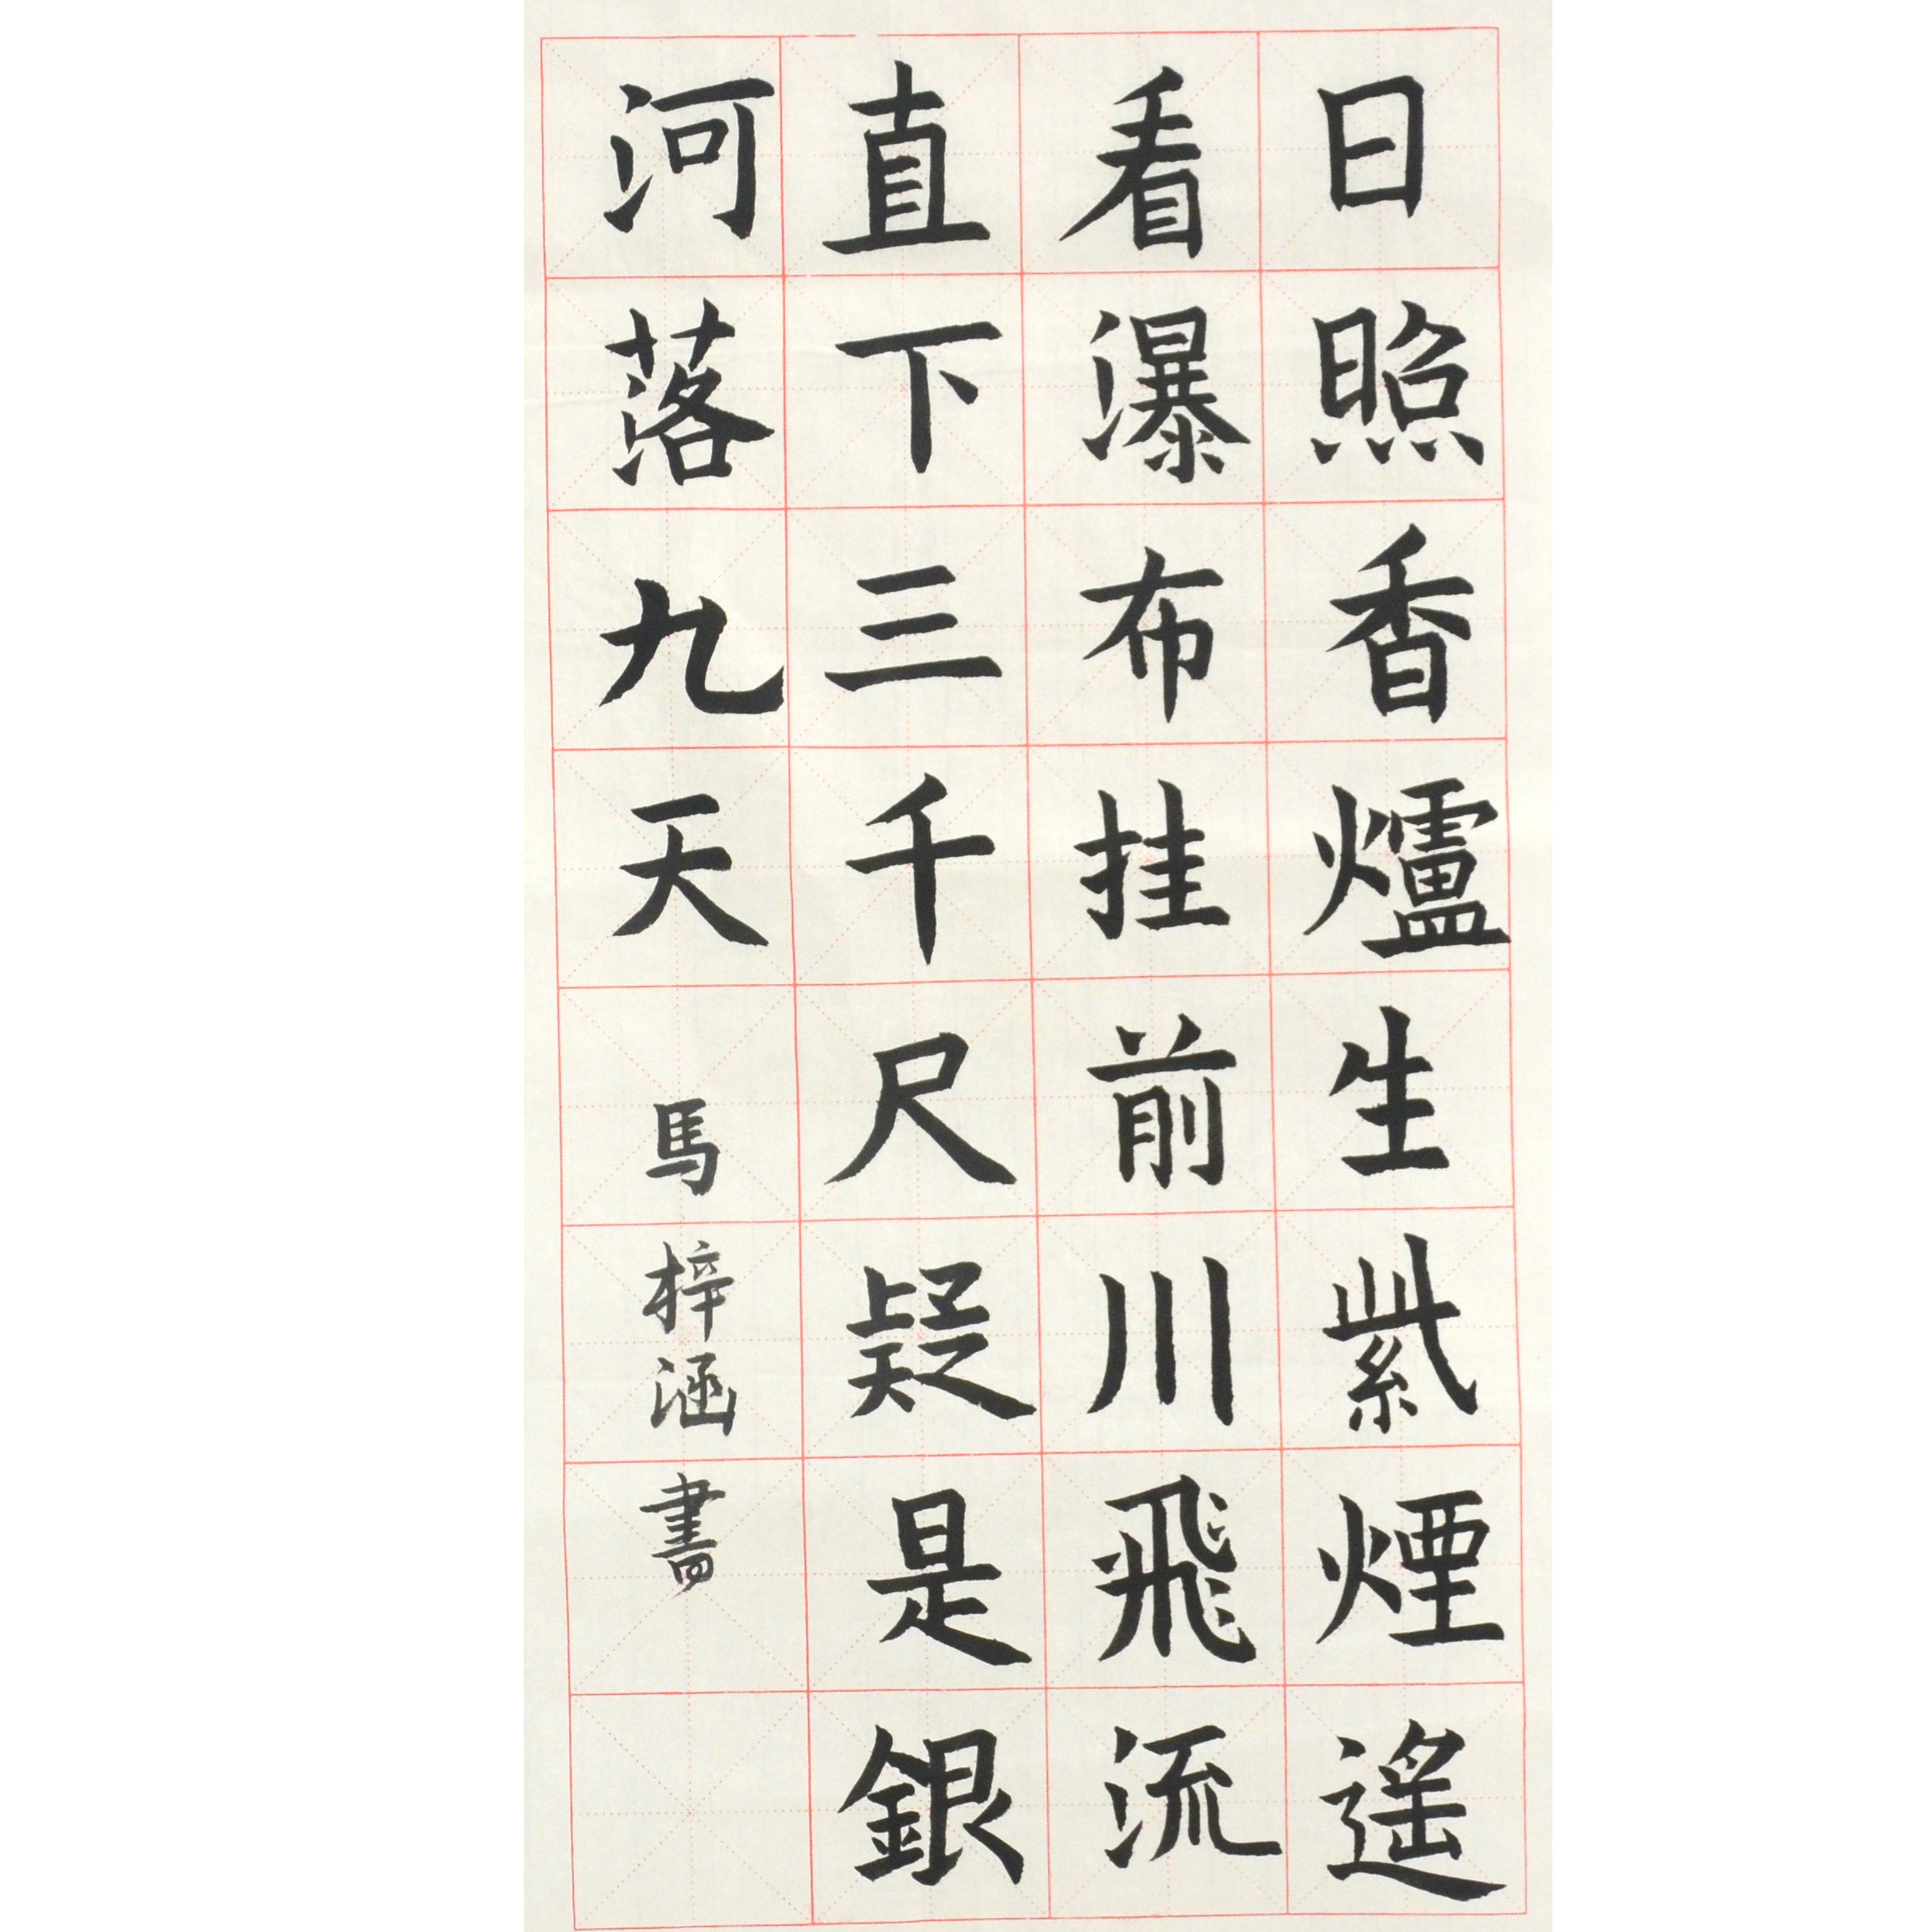 日照香爐生紫煙遥
看瀑布挂前川飛流
直下三千尺疑是銀
河落九天 馬梓涵書